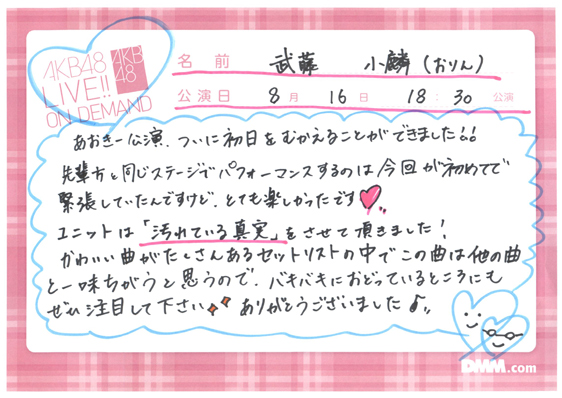 AKB48
LIVE!!
ON DEMAND
AKB
48
名前 武藤 小麟(おりん)
公演日 8月 16日 18:30 公演
あおきー公演、ついに初日をむかえることができました!!
先輩方と同じステージでパフォーマンスするのは今回が初めてで
緊張していたんですけど、とても楽しかったです
ユニットは「汚れている真実」をさせて頂きました!
かわいい曲がたくさんあるセットリストの中でこの曲は他の曲
と一味ちがうと思うので、バキバキにおどっているところにも
ぜひ注目して下さい ありがとうございました♪
DMM.com